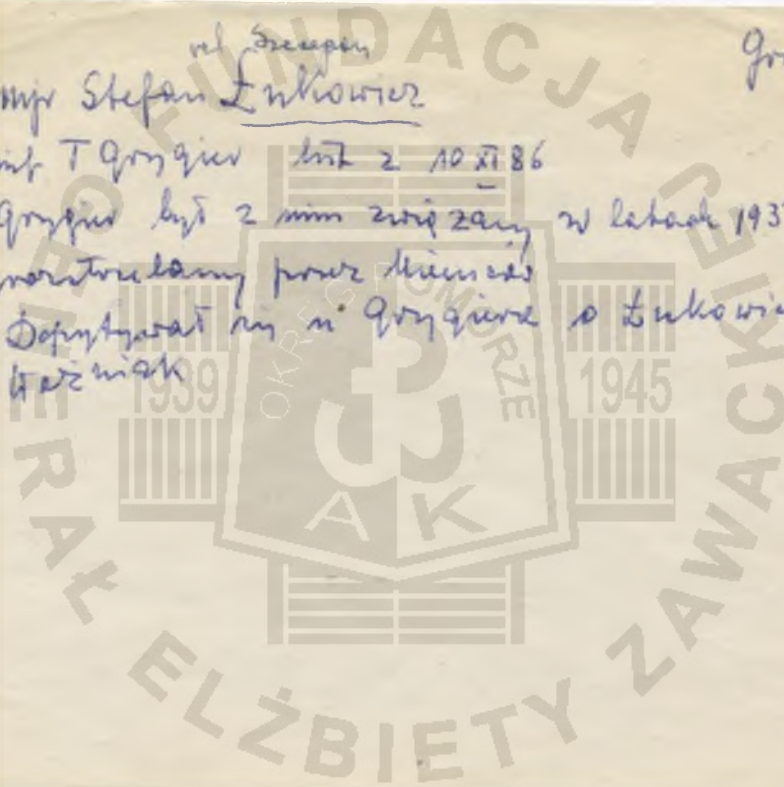 vel Szczepan
Gr
mjr Stefan Łukowicz
inf. T Grygier list z 10 XI 86
Grygier był z nim związany w latach 193
rozstrzelany przez Niemców
Dopytywał się u Grygiera o Łukowic
Woźniak
FUNDACJA
GENERAŁ ELŻBIETY ZAWACKIEJ
OKRĘG POMORZE
1939 1945
AK